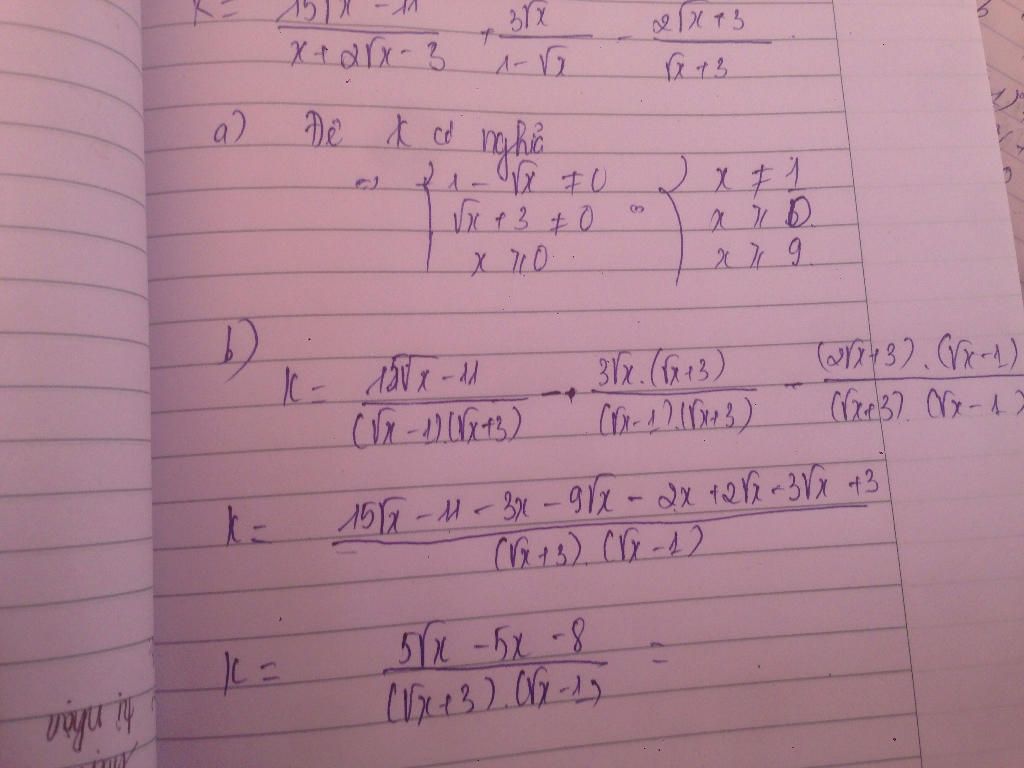 K = \frac{15\sqrt{x} - 11}{x + 2\sqrt{x} - 3} + \frac{3\sqrt{x}}{1 - \sqrt{x}} - \frac{2\sqrt{x} + 3}{\sqrt{x} + 3}
a) Để K có nghĩa
=> { 1 - \sqrt{x} ≠ 0 } x ≠ 1
\sqrt{x} + 3 ≠ 0 x ≥ 0
x ≥ 0 x ≥ 9
b)
K = \frac{15\sqrt{x} - 11}{(\sqrt{x} - 1)(\sqrt{x} + 3)} - \frac{3\sqrt{x}.(\sqrt{x} + 3)}{(\sqrt{x} - 1).(\sqrt{x} + 3)} - \frac{(2\sqrt{x} + 3).(\sqrt{x} - 1)}{(\sqrt{x} + 3).(\sqrt{x} - 1)}
K = \frac{15\sqrt{x} - 11 - 3x - 9\sqrt{x} - 2x + 2\sqrt{x} - 3\sqrt{x} + 3}{(\sqrt{x} + 3).(\sqrt{x} - 1)}
K = \frac{5\sqrt{x} - 5x - 8}{(\sqrt{x} + 3).(\sqrt{x} - 1)} =